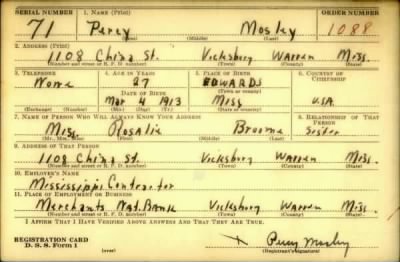 SERIAL NUMBER 1. NAME (Print) ORDER NUMBER
71 Percy Mosley 1088
(First) (Middle) (Last)
2. ADDRESS (Print)
1108 China St. Vicksburg Warren Miss.
(Number and street or R. F. D. number) (Town) (County) (State)
3. TELEPHONE 4. AGE IN YEARS 5. PLACE OF BIRTH 6. COUNTRY OF CITIZENSHIP
None 27 EDWARDS
DATE OF BIRTH (Town or county)
Mar 4 1913 Miss U.S.A.
(Exchange) (No.) (Mo.) (Day) (Yr.) (State or country)
7. NAME OF PERSON WHO WILL ALWAYS KNOW YOUR ADDRESS 8. RELATIONSHIP OF THAT PERSON
Miss. Rosalie Broome Sister
(Mr., Mrs., Miss) (First) (Middle) (Last)
9. ADDRESS OF THAT PERSON
1108 China St. Vicksburg Warren Miss.
(Number and street or R. F. D. number) (Town) (County) (State)
10. EMPLOYER'S NAME
Mississippi Contractor
11. PLACE OF EMPLOYMENT OR BUSINESS
Merchants Nat. Bank Vicksburg Warren Miss.
(Number and street or R. F. D. number) (Town) (County) (State)
I AFFIRM THAT I HAVE VERIFIED ABOVE ANSWERS AND THAT THEY ARE TRUE.
REGISTRATION CARD
D. S. S. Form 1 (over) x Percy Mosley
(Registrant's signature)